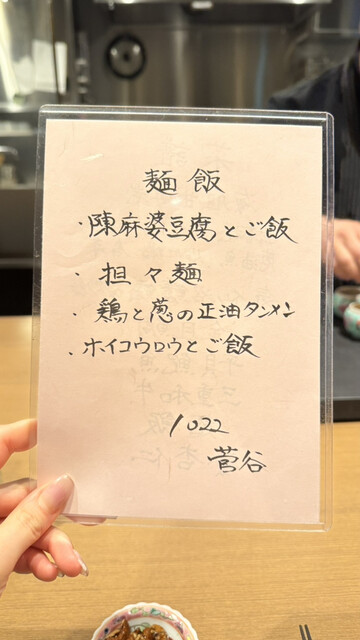 麺飯
・陳麻婆豆腐とご飯
・担々麺
・鶏と葱の正油タンメン
・ホイコウロウとご飯
1022
菅谷